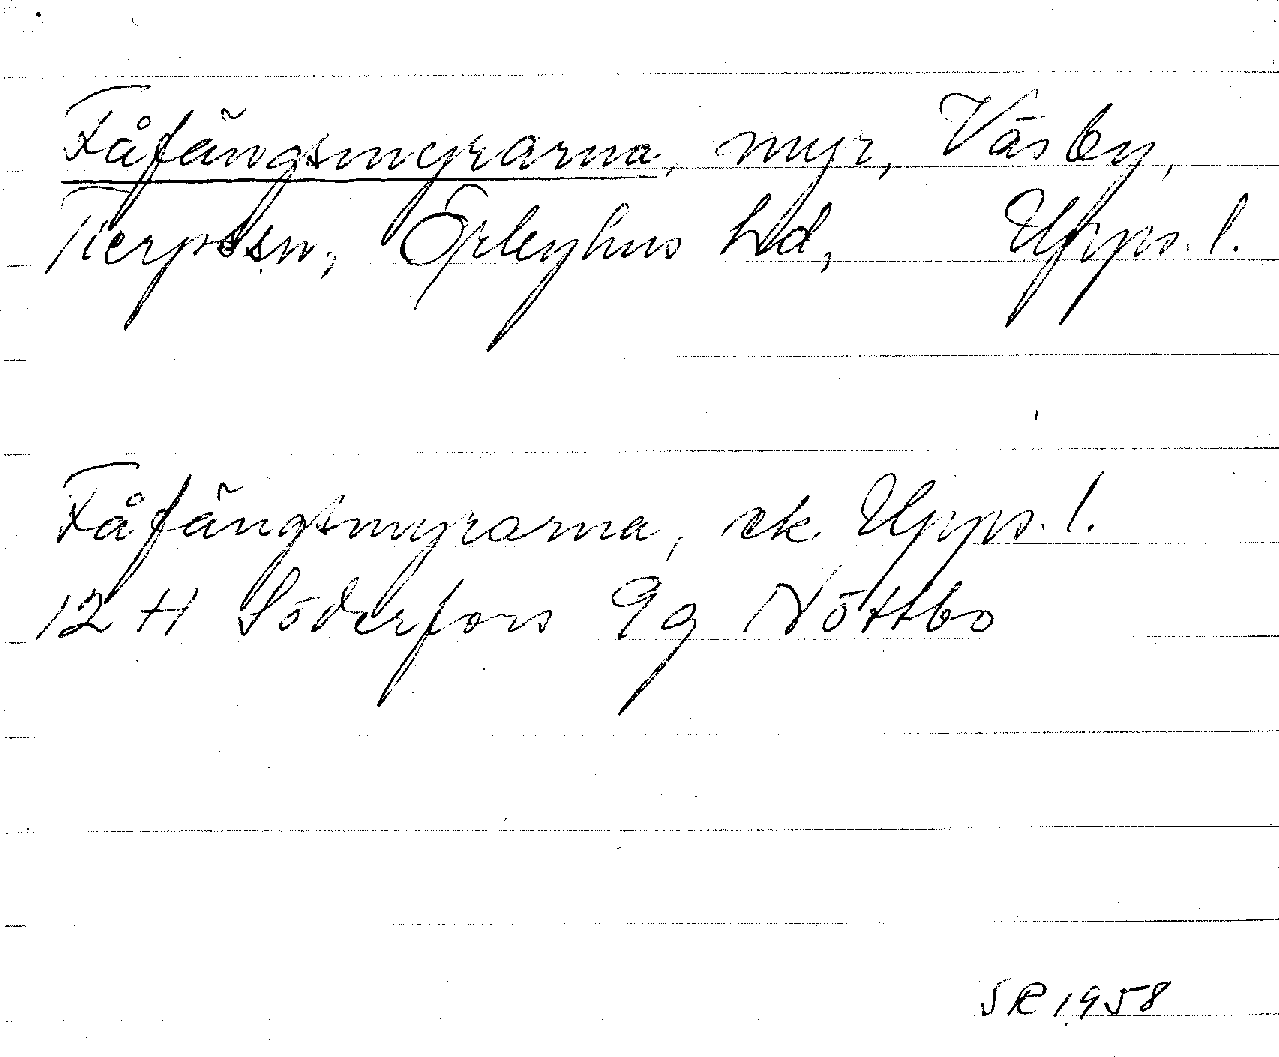 Fåfängsmyrarna, myr, Väsby,
Tierps sn, Örbyhus hd, Upps. l.
Fåfängsmyrarna, ek. Upps. l.
12 H Söderfors 9g Nöttbo
SR 1958